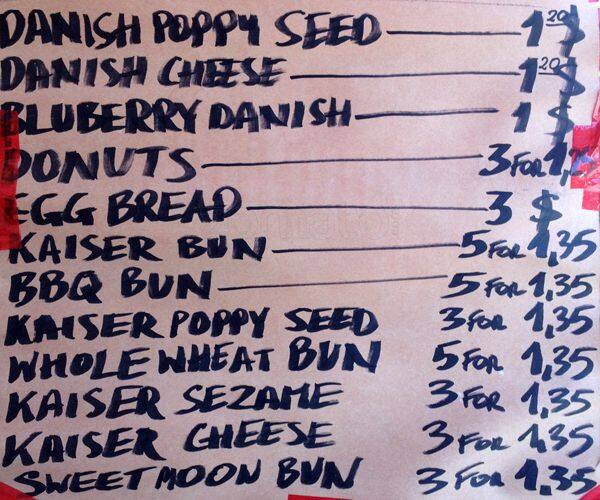 DANISH POPPY SEED 1 20 $
DANISH CHEESE 1 20 $
BLUBERRY DANISH 1 $
DONUTS 3 FOR
EGG BREAD 3 $
KAISER BUN 5 FOR 1,35
BBQ BUN 5 FOR 1,35
KAISER POPPY SEED 3 FOR 1,35
WHOLE WHEAT BUN 5 FOR 1,35
KAISER SEZAME 3 FOR 1,35
KAISER CHEESE 3 FOR 1,35
SWEET MOON BUN 3 FOR 1,35